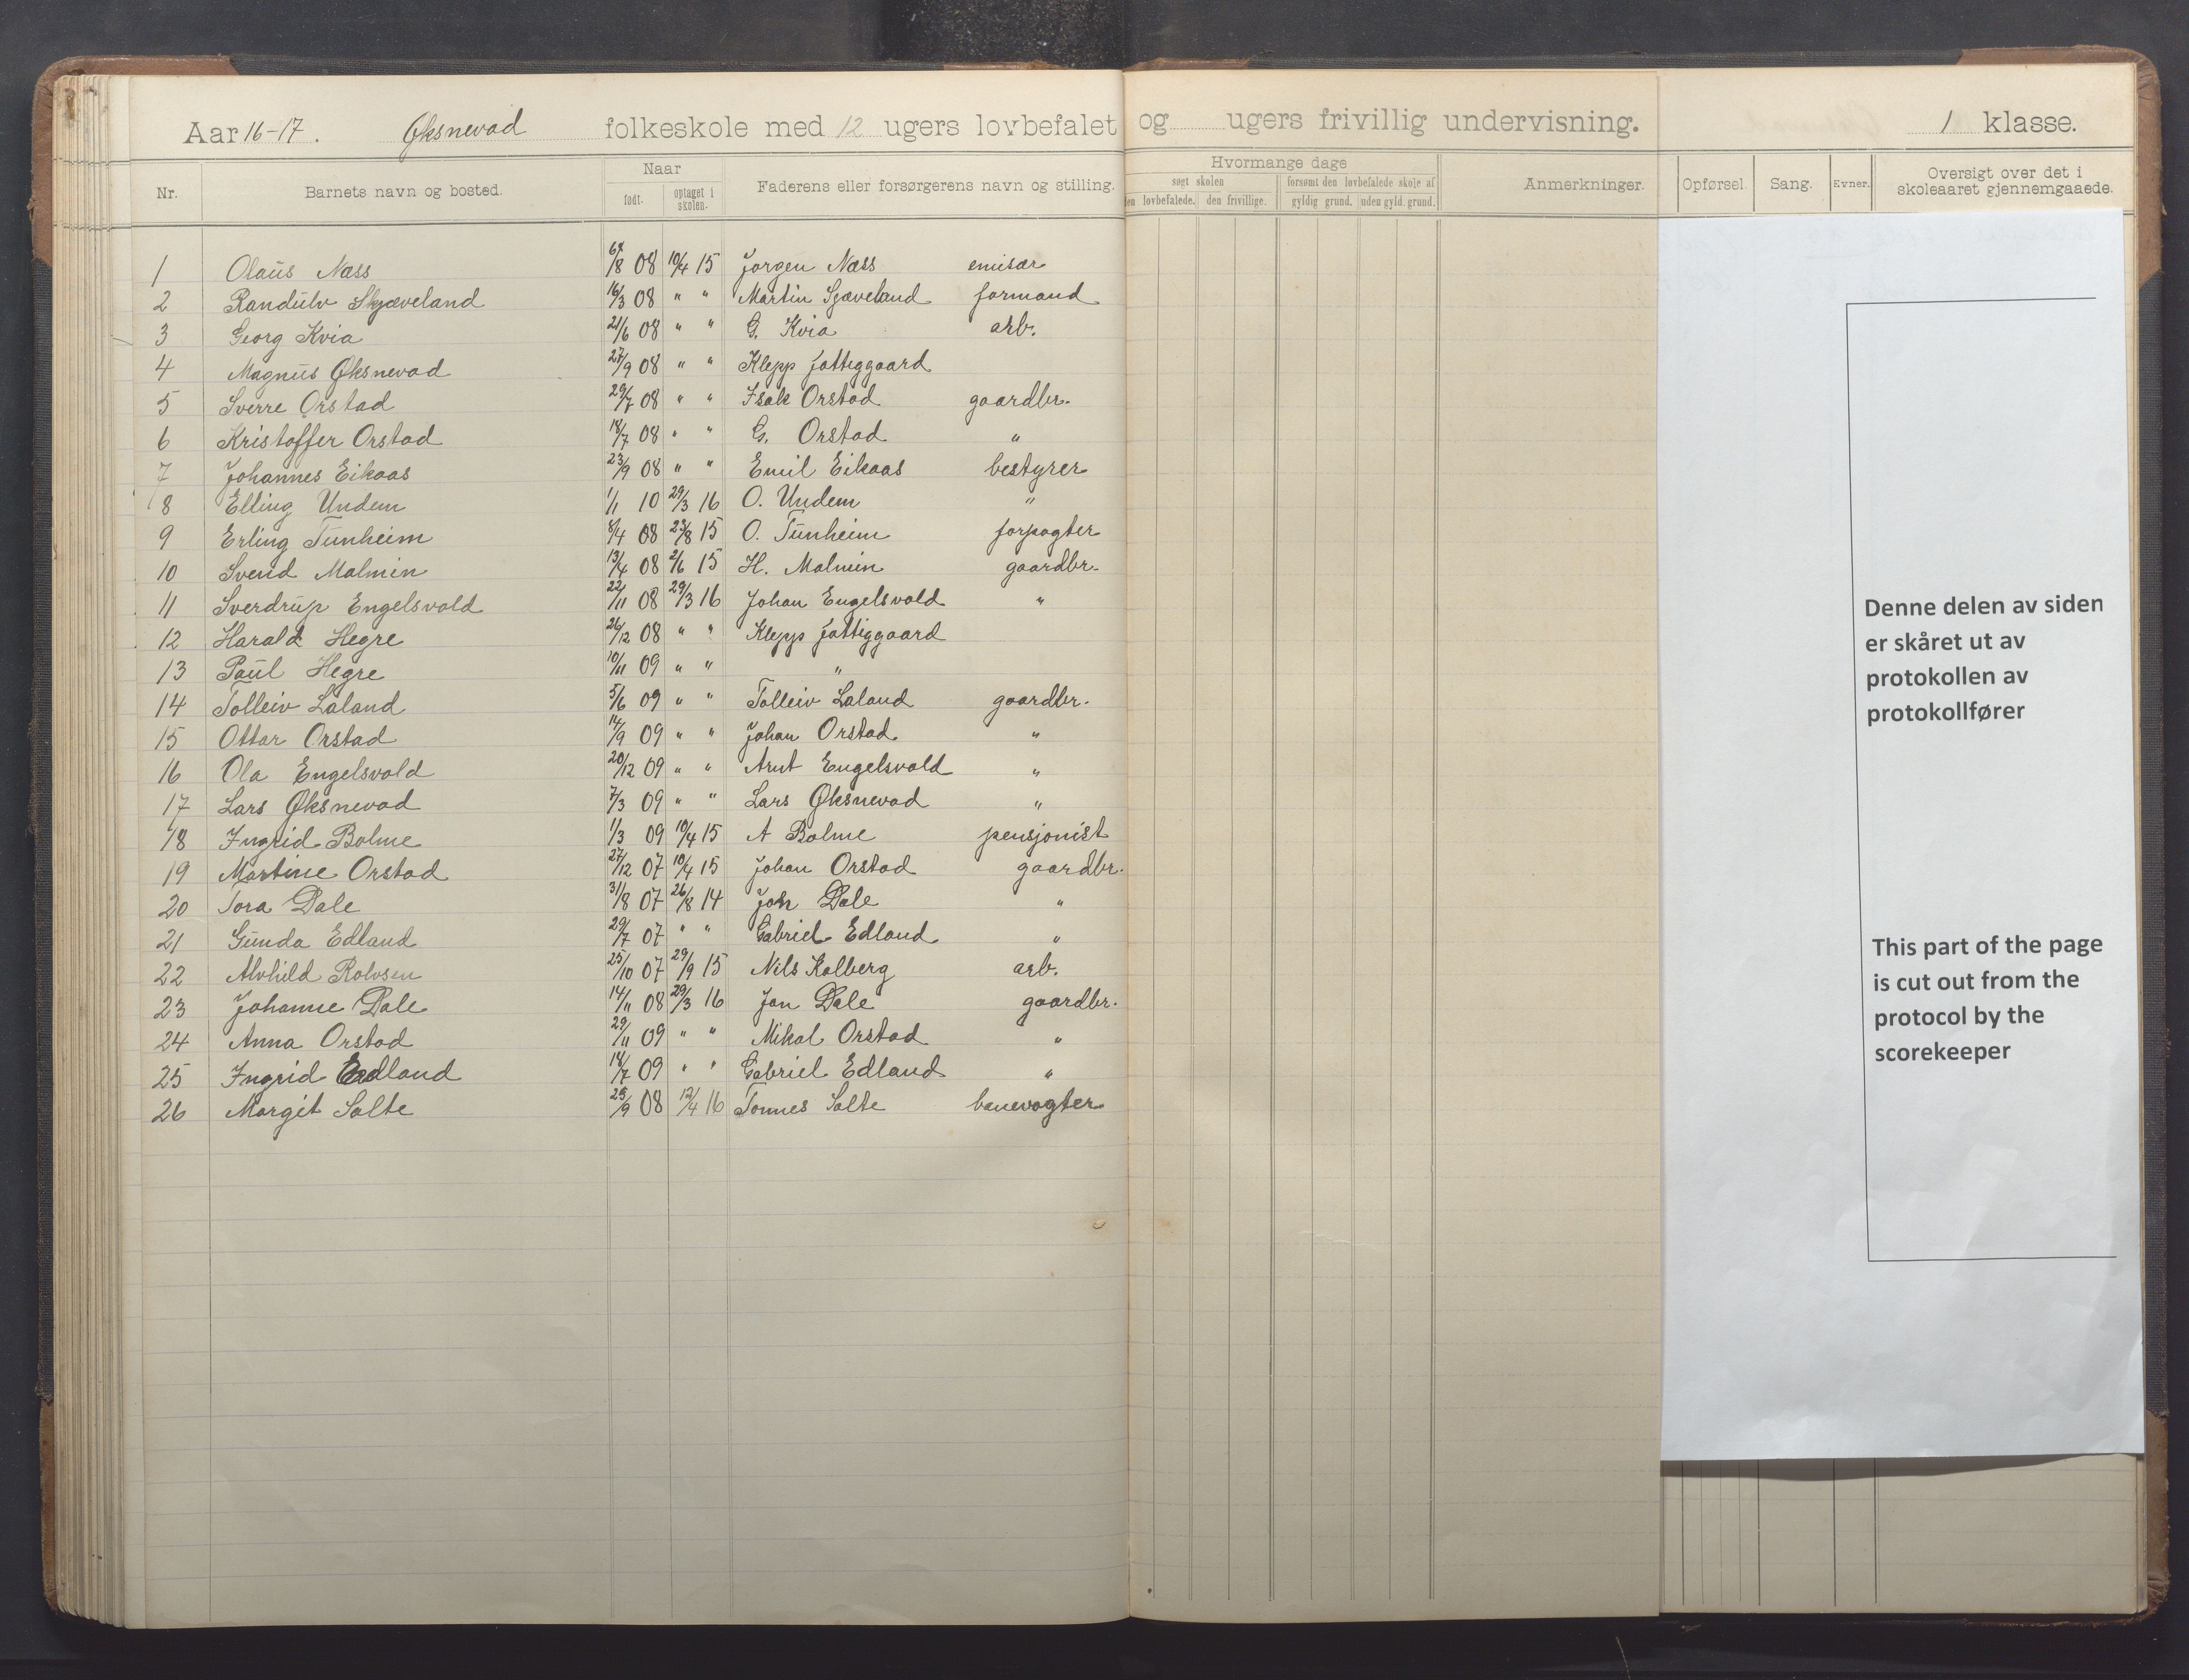 Aar 16-17. Øksnevad folkeskole med 12 ugers lovbefalet og ugers frivillig undervisning. 1 klasse.
Nr. Barnets navn og bosted. Naar født. optaget i skolen. Faderens eller forsørgerens navn og stilling. Hvormange dage søgt skolen den lovbefalede. den frivillige. forsømt den lovbefalede skole af gyldig grund. uden gyld. grund. Anmerkninger. Opførsel. Sang. Evner. Oversigt over det i skoleaaret gjennemgaaede.
1 Olaus Næss /8 08 10/4 15 Jørgen Næss emisær
2 Randulv Skjæveland 16/3 08 " " Martin Sjæveland formand
3 Georg Kvia 21/6 08 " " G. Kvia arb.
4 Magnus Øksnevad 27/9 08 " " Klepp fattiggaard
5 Sverre Orstad 29/7 08 " " Isak Orstad gaardbr.
6 Kristoffer Orstad 18/7 08 " " G. Orstad "
7 Johannes Eikaas 23/9 08 " " Emil Eikaas bestyrer
8 Elling Undem 1/1 10 29/3 16 O. Undem "
9 Erling Tunheim 8/4 08 23/8 15 O. Tunheim forpagter
10 Svend Malmin 13/4 08 2/6 15 H. Malmin gaardbr.
11 Sverdrup Engelsvold 22/11 08 29/3 16 Johan Engelsvold "
12 Harald Hegre 26/12 08 " " Klepp fattiggaard
13 Paul Hegre 10/11 09 " " "
14 Tolleiv Laland 5/6 09 " " Tolleiv Laland gaardbr.
15 Ottar Orstad 14/9 09 " " Johan Orstad "
16 Ola Engelsvold 20/12 09 " " Arnt Engelsvold "
17 Lars Øksnevad 7/3 09 " " Lars Øksnevad "
18 Ingrid Bolme 1/3 09 10/4 15 A Bolme pensjonist
19 Martine Orstad 27/12 07 10/4 15 Johan Orstad gaardbr.
20 Tora Dale 31/8 07 26/8 14 Jon Dale "
21 Gunda Edland 29/7 07 " " Gabriel Edland "
22 Alvhild Rolvsen 25/10 07 29/9 15 Nils Kolberg arb.
23 Johanne Dale 14/11 08 29/3 16 Jon Dale gaardbr.
24 Anna Orstad 29/11 09 " " Mikal Orstad "
25 Ingrid Edland 14/7 09 " " Gabriel Edland "
26 Margit Salte 25/9 08 12/4 16 Tønnes Salte banevogter
Denne delen av siden
er skåret ut av
protokollen av
protokollfører
This part of the page
is cut out from the
protocol by the
scorekeeper